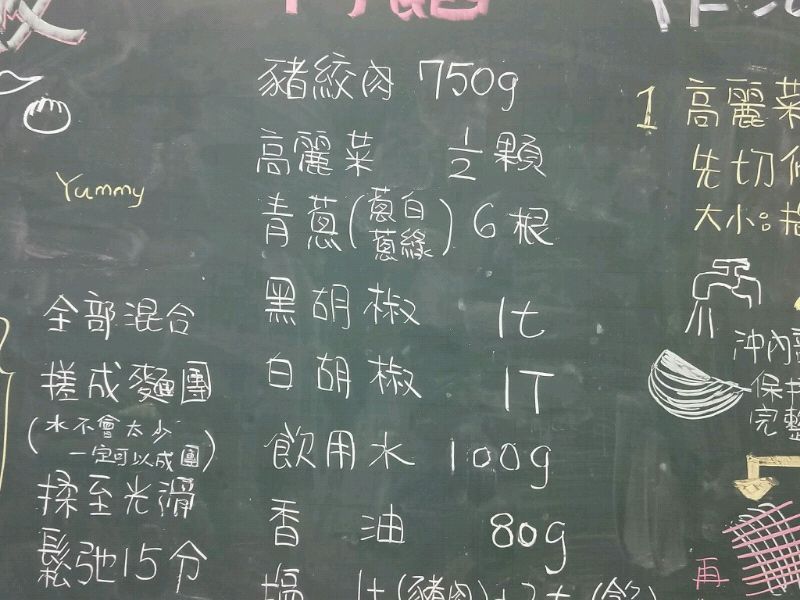 Yummy
全部混合
搓成麵團
(水不會太少
一定可以成團)
揉至光滑
鬆弛15分
豬絞肉 750g
高麗菜 1/2顆
青蔥(蔥白 蔥綠) 6根
黑胡椒 1t
白胡椒 1T
飲用水 100g
香油 80g
鹽 1t(豬肉)+2t(
1 高麗菜
先切
大小:
沖內
保持
完整
再